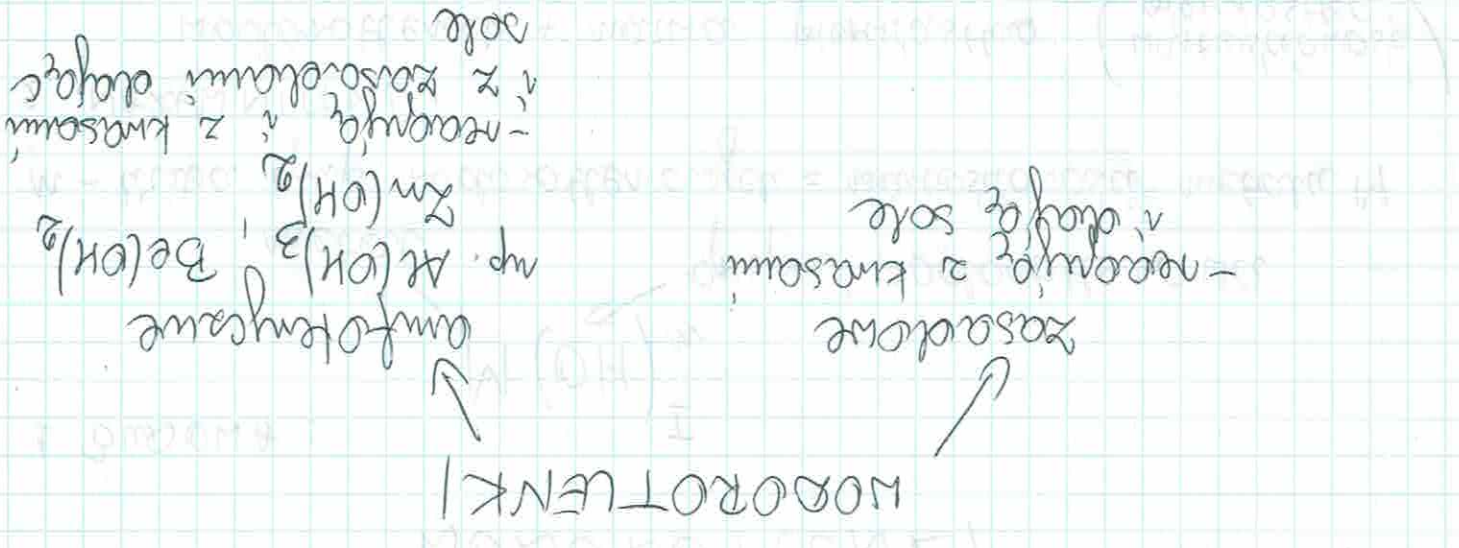 WODOROTLENKI
zasadowe
- reagują z kwasami
i dają sole
amfoteryczne
np. Al(OH)₃, Be(OH)₂
Zn(OH)₂
- reagują i z kwasami
i z zasadami dając
sole